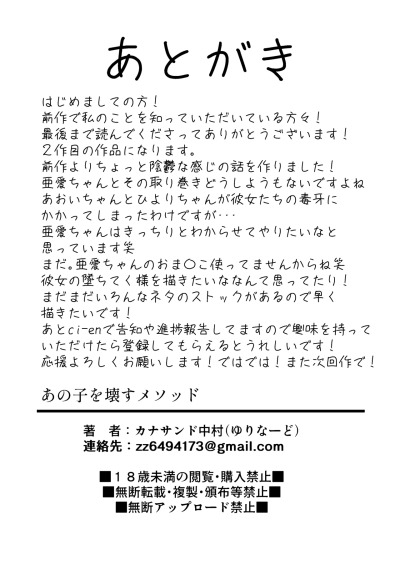 あとがき
はじめましての方！
前作で私のことを知っていただいている方々！
最後まで読んでくださってありがとうございます！
２作目の作品になります。
前作よりちょっと陰鬱な感じの話を作りました！
亜愛ちゃんとその取り巻きどうしようもないですよね
あおいちゃんとひよりちゃんが彼女たちの毒牙に
かかってしまったわけですが･･･
亜愛ちゃんはきっちりとわからせてやりたいなと
思っています笑
まだ。亜愛ちゃんのおま〇こ使ってませんからね笑
彼女の堕ちてく様を描きたいななんて思ってたり！
まだまだいろんなネタのストックがあるので早く
描きたいです！
あとci-enで告知や進捗報告してますので興味を持って
いただけたら登録してもらえるとうれしいです！
応援よろしくお願いします！ではでは！また次回作で！
あの子を壊すメソッド
著　者：カナサンド中村（ゆりなーど）
連絡先：zz6494173@gmail.com
■１８歳未満の閲覧・購入禁止■
■無断転載・複製・頒布等禁止■
■無断アップロード禁止■